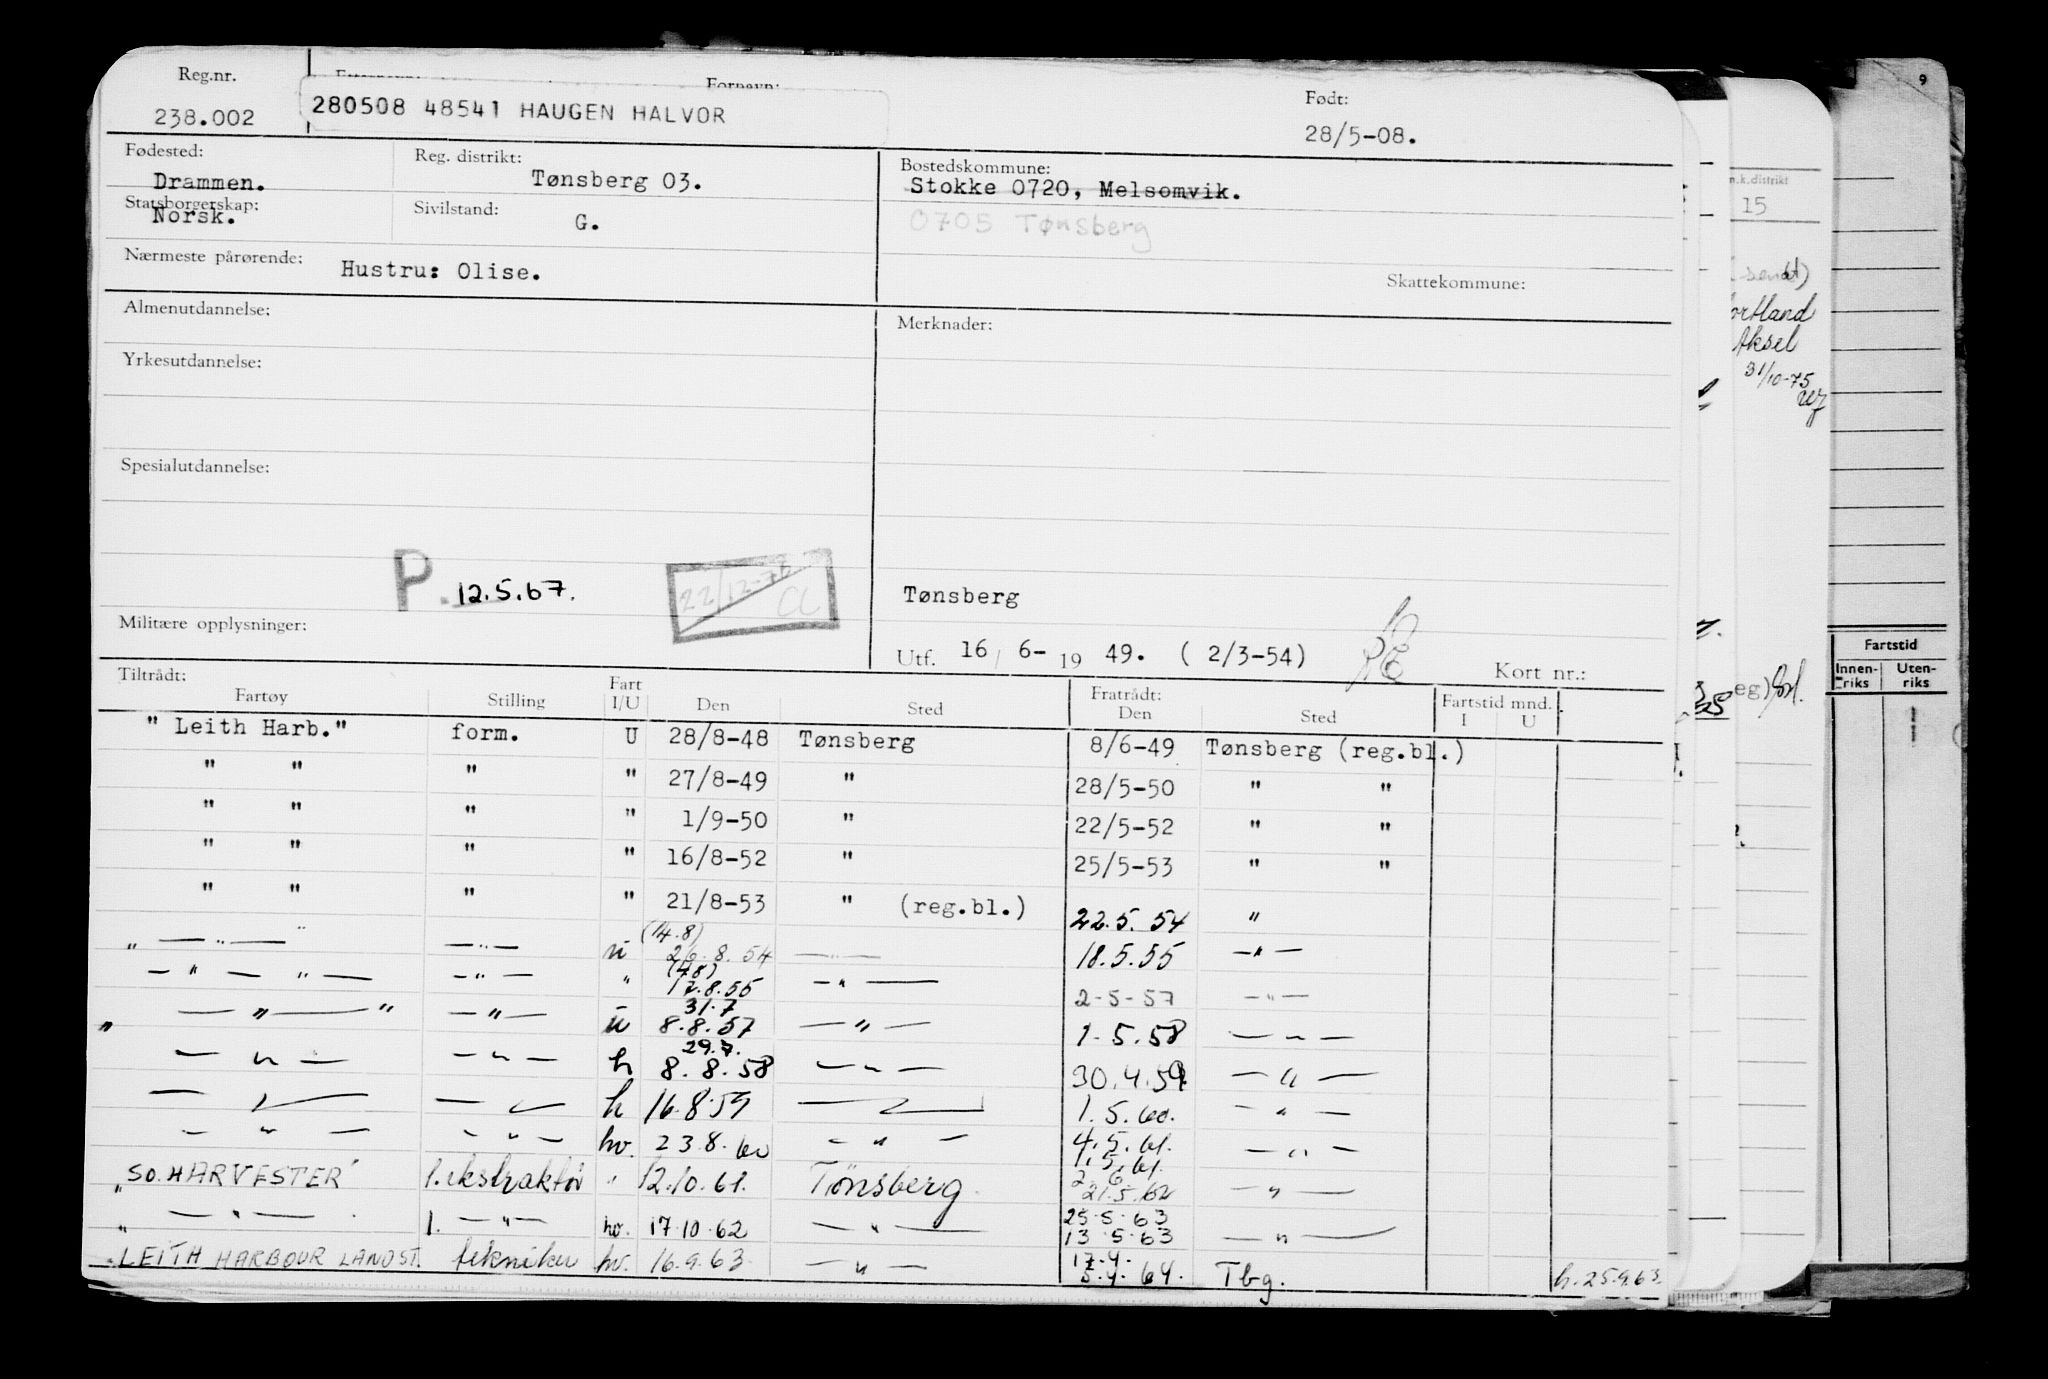 Reg.nr. Fornavn: Født:
238.002 280508 48541 HAUGEN HALVOR 28/5-08.
Fødested: Reg. distrikt: Bostedskommune:
Drammen. Tønsberg 03. Stokke 0720, Melsomvik.
Statsborgerskap: Sivilstand: 0705 Tønsberg
Norsk. G.
Nærmeste pårørende: Hustru: Olise. Skattekommune:
Almenutdannelse: Merknader:
Yrkesutdannelse:
Spesialutdannelse:
P. 12.5.67. 22/12-78 CL Tønsberg
Militære opplysninger: Utf. 16/ 6- 19 49. ( 2/3-54) Kort nr.:
Tiltrådt: Fart Fratrådt: Fartstid mnd.
Fartøy Stilling I/U Den Sted Den Sted I U
" Leith Harb." form. U 28/8-48 Tønsberg 8/6-49 Tønsberg (reg.bl.)
" " " " 27/8-49 " 28/5-50 " "
" " " " 1/9-50 " 22/5-52 " "
" " " " 16/8-52 " 25/5-53 " "
" " " " 21/8-53 " (reg.bl.) 22.5.54 "
(14.8)
" — " — " — " — u 26.8.54 — " — 18.5.55 — " —
— " — " — — " — " 17.8.55 — " — 2-5-57 — " —
31.7
" — " — " — " — u 8.8.57 — " — 1.5.58 — " —
29.7.
— " — — " — h 8.8.58 — " — 30.4.59 — " —
— " — — " — h 16.8.59 — " — 1.5.60. — " —
— " — — " — hv. 23.8.60 — " — 4.5.61. — " —
1.5.61.
"SO. HARVESTER" 1. ekstraktør " 12.10.61. Tønsberg. 21.5.62 — " —
25.5.63
" — " — 1. — " — hv. 17.10.62 — " — 13.5.63 — " —
17.4.
LEITH HARBOUR LANDST. tekniker hv. 16.9.63. — " — 5.4.64. Tbg. h.25.9.63.
9
m.k.distrikt
15
Aksel
31/10-75
eg)
Fartstid
Innen-riks Uten-riks